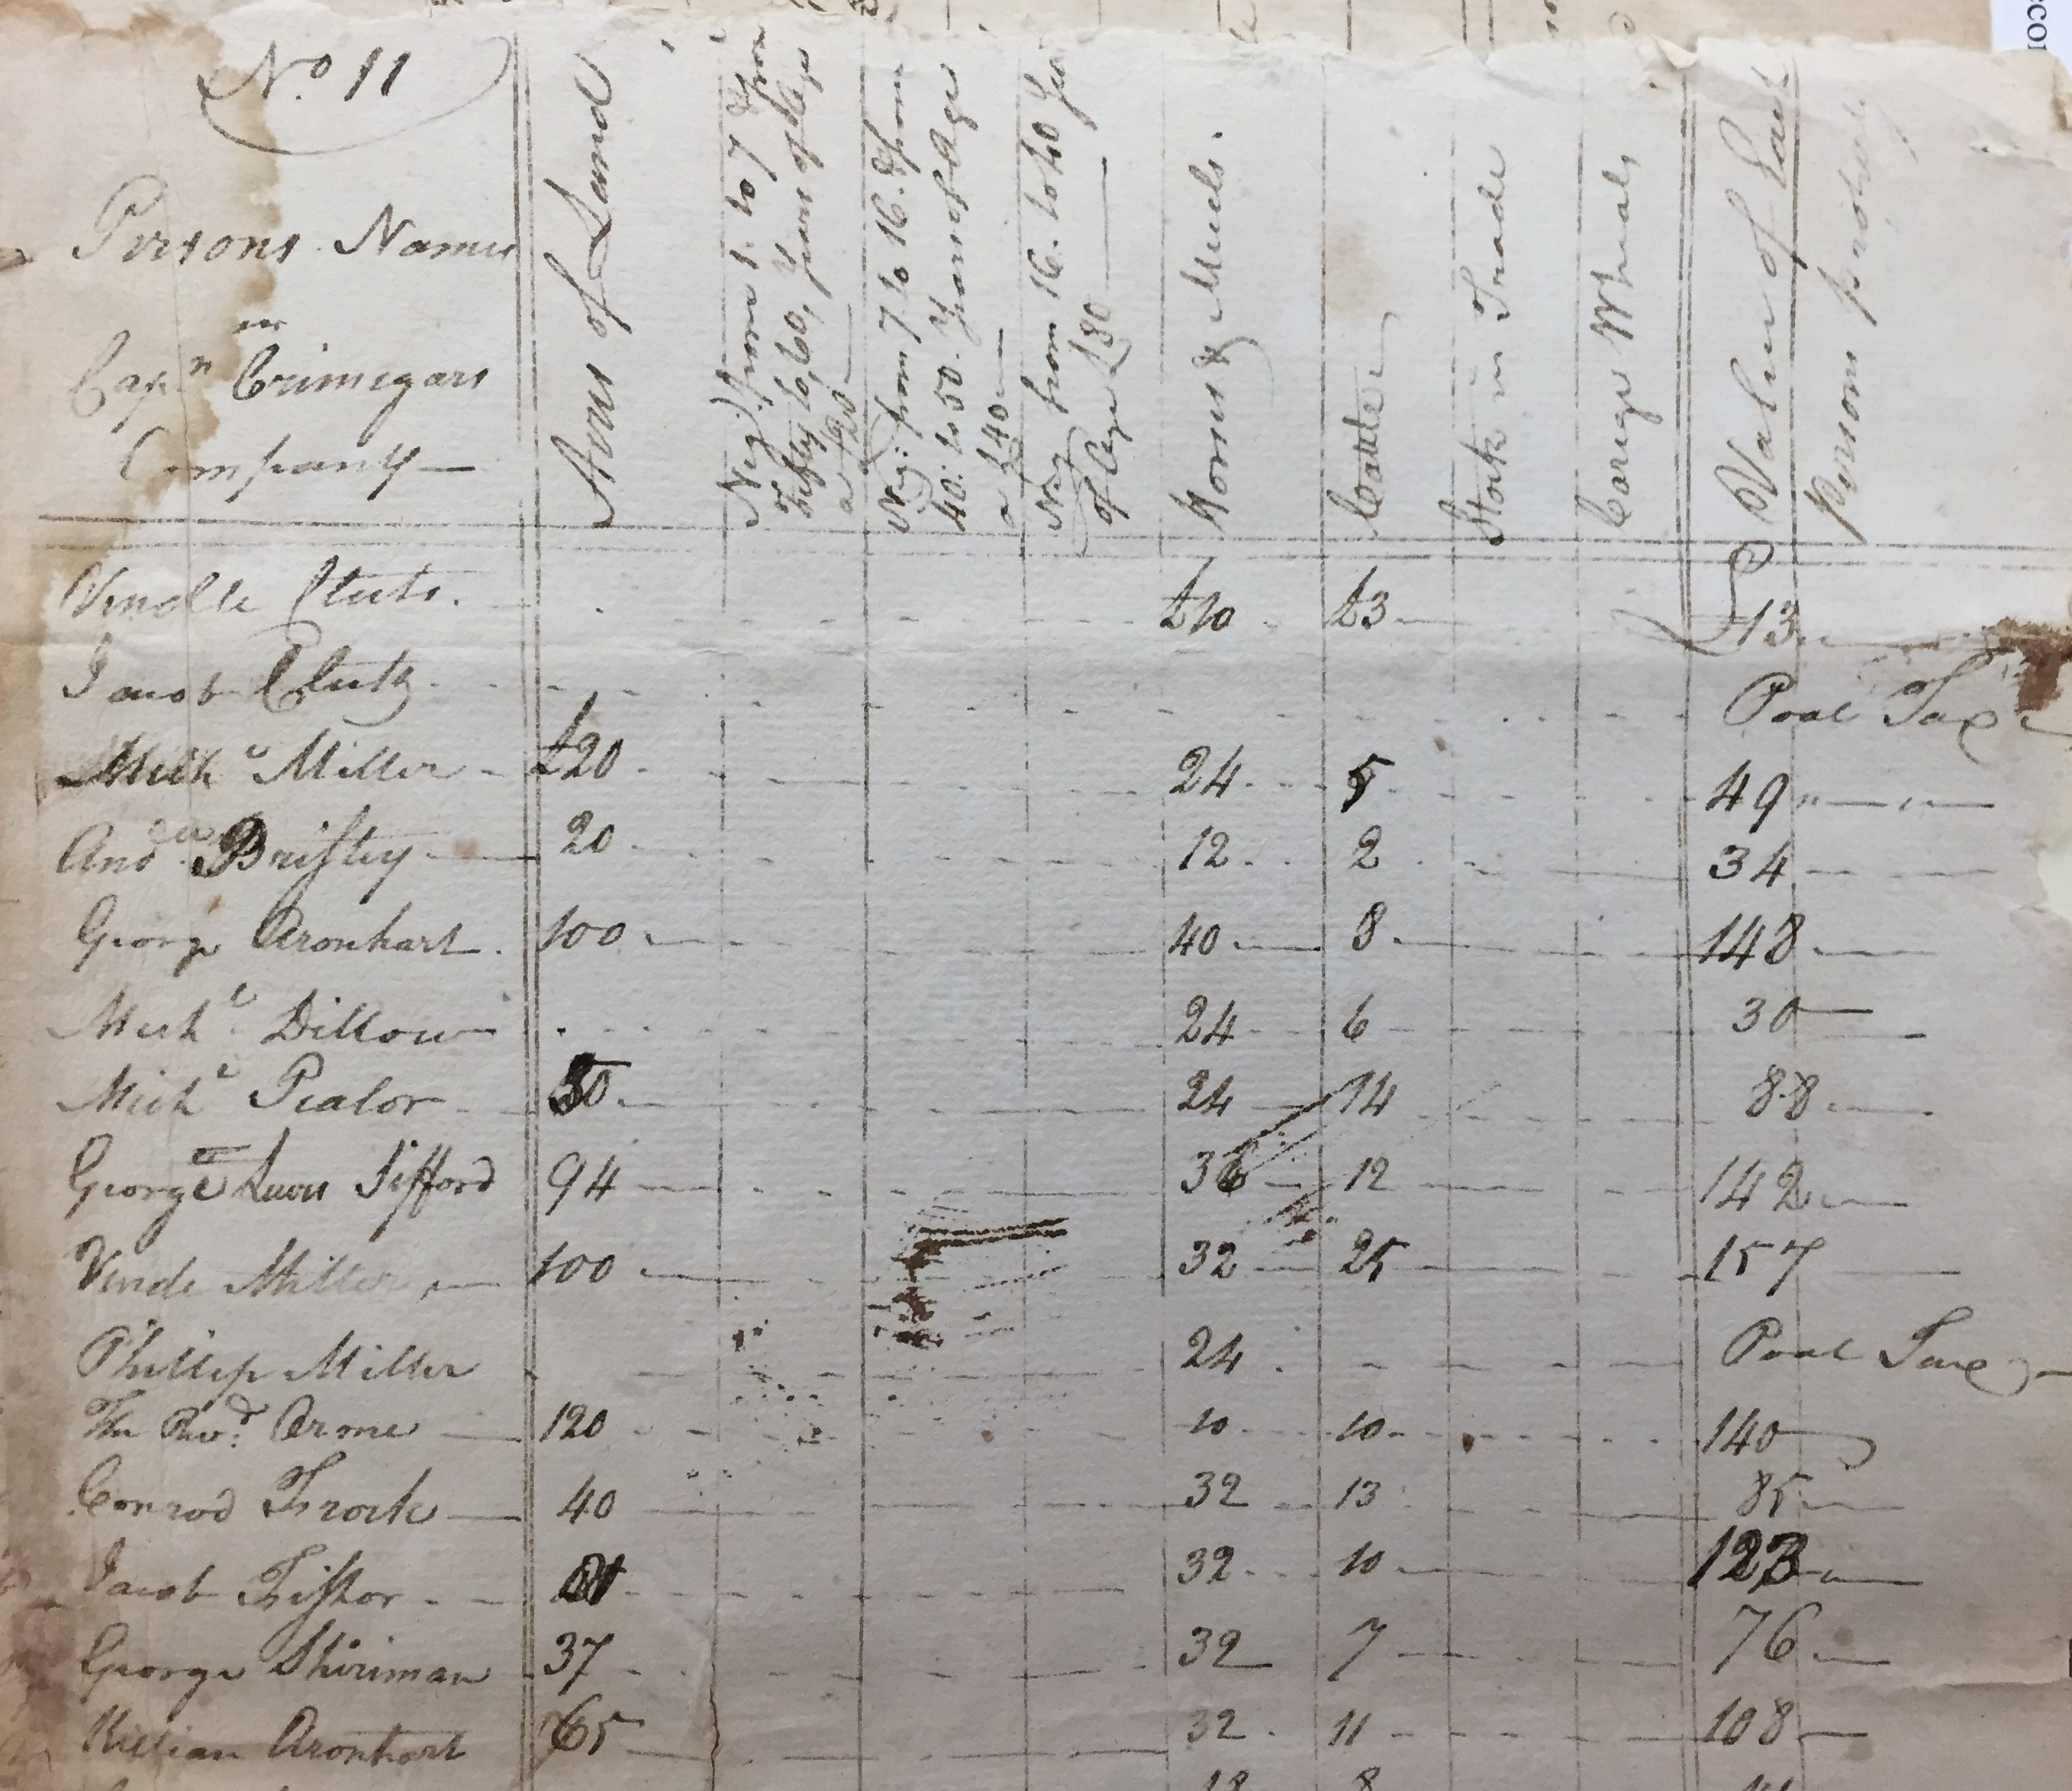 No 11
Persons Names
in
Capn Crimegars
Company
Acres of Land
Neg: from 1. to 7 & from
Fifty to 60, Years of Age
a £20
Neg: from 7 to 16. & from
40. to 50. Years of Age
a £40
Neg from 16. to 40
of Age £80
Horses & Muels.
Cattle
Stock in Trade
Carege Wheals
Value of Each
Persons
Vendle Cluts. £10 £3 £13
Jacob Clutz Poal Tax
Michl Miller £20 24 5 49
Andw Brifley 20 12 2 34
George Aronhart 100 40 8 148
Michl Dillow 24 6 30
Michl Pealor 50 24 14 88
George Lewes Sifford 94 36 12 142
Vende Miller 100 32 25 157
Phillip Miller 24 Poal Tax
The Revd Arone 120 10 10 140
Conrod Frock 40 32 13 85
Jacob Fishor 32 10 123
George Shiriman 37 32 7 76
Killian Aronhart 65 32 11 108
18 8